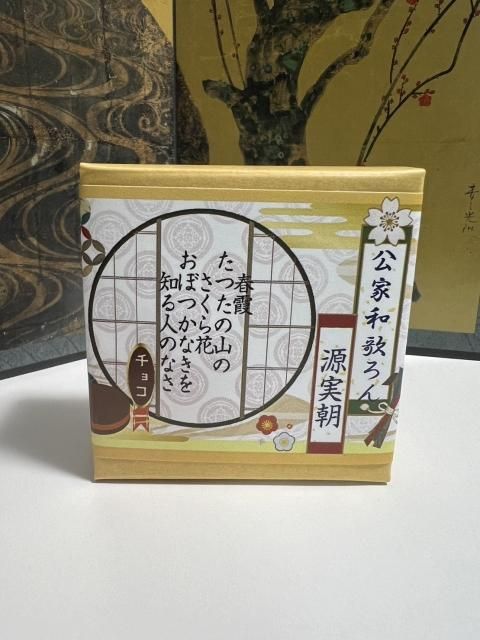 公家和歌ろん
源実朝
春霞
たつたの山の
さくら花
おぼつかなきを
知る人のなさ
チョコ